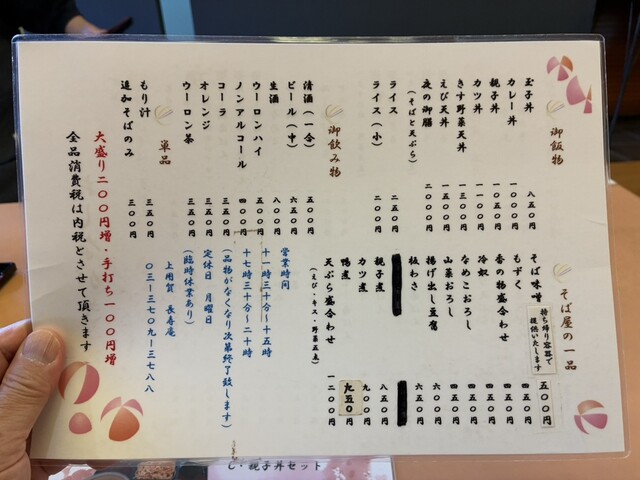 御飯物
玉子丼 八五〇円
カレー丼 一〇〇〇円
親子丼 一〇五〇円
カツ丼 一一〇〇円
きす野菜天丼 一三〇〇円
えび天丼 一五〇〇円
夜の御膳 二〇〇〇円
(そばと天ぷら)
ライス 二五〇円
ライス(小) 二〇〇円
御飲み物
清酒(一合) 五〇〇円
ビール(中) 六五〇円
生酒 八〇〇円
ウーロンハイ 五〇〇円
ノンアルコール 四〇〇円
コーラ 三五〇円
オレンジ 三五〇円
ウーロン茶 三五〇円
単品
もり汁 三五〇円
追加そばのみ 三〇〇円
そば屋の一品
そば味噌 五〇〇円
持ち帰り容器で
提供いたします
もずく 四五〇円
香の物盛合わせ 四五〇円
冷奴 四五〇円
なめこおろし 四五〇円
山菜おろし 四五〇円
揚げ出し豆腐 六〇〇円
板わさ 六五〇円
親子煮 八五〇円
カツ煮 九〇〇円
鴨煮 九五〇円
天ぷら盛合わせ 一二〇〇円
(えび・キス・野菜五点)
営業時間
十一時三十分〜十五時
十七時三十分〜二十時
(品物がなくなり次第終了致します)
定休日 月曜日
(臨時休業あり)
上用賀 長寿庵
〇三-三七〇九-三七八八
大盛り二〇〇円増・手打ち一〇〇円増
全品消費税は内税とさせて頂きます
し・親子丼セット